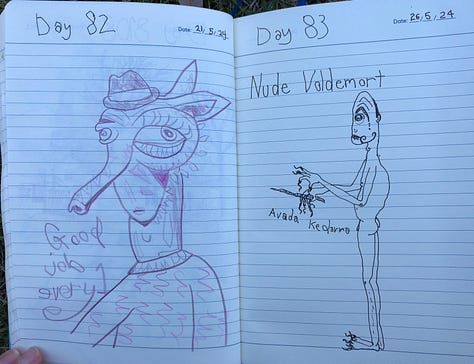 Day 82
Date: 21, 5, 24
Good
job
every 1
Day 83
Date: 26, 5, 24
Nude Voldemort
Avada Kedavra